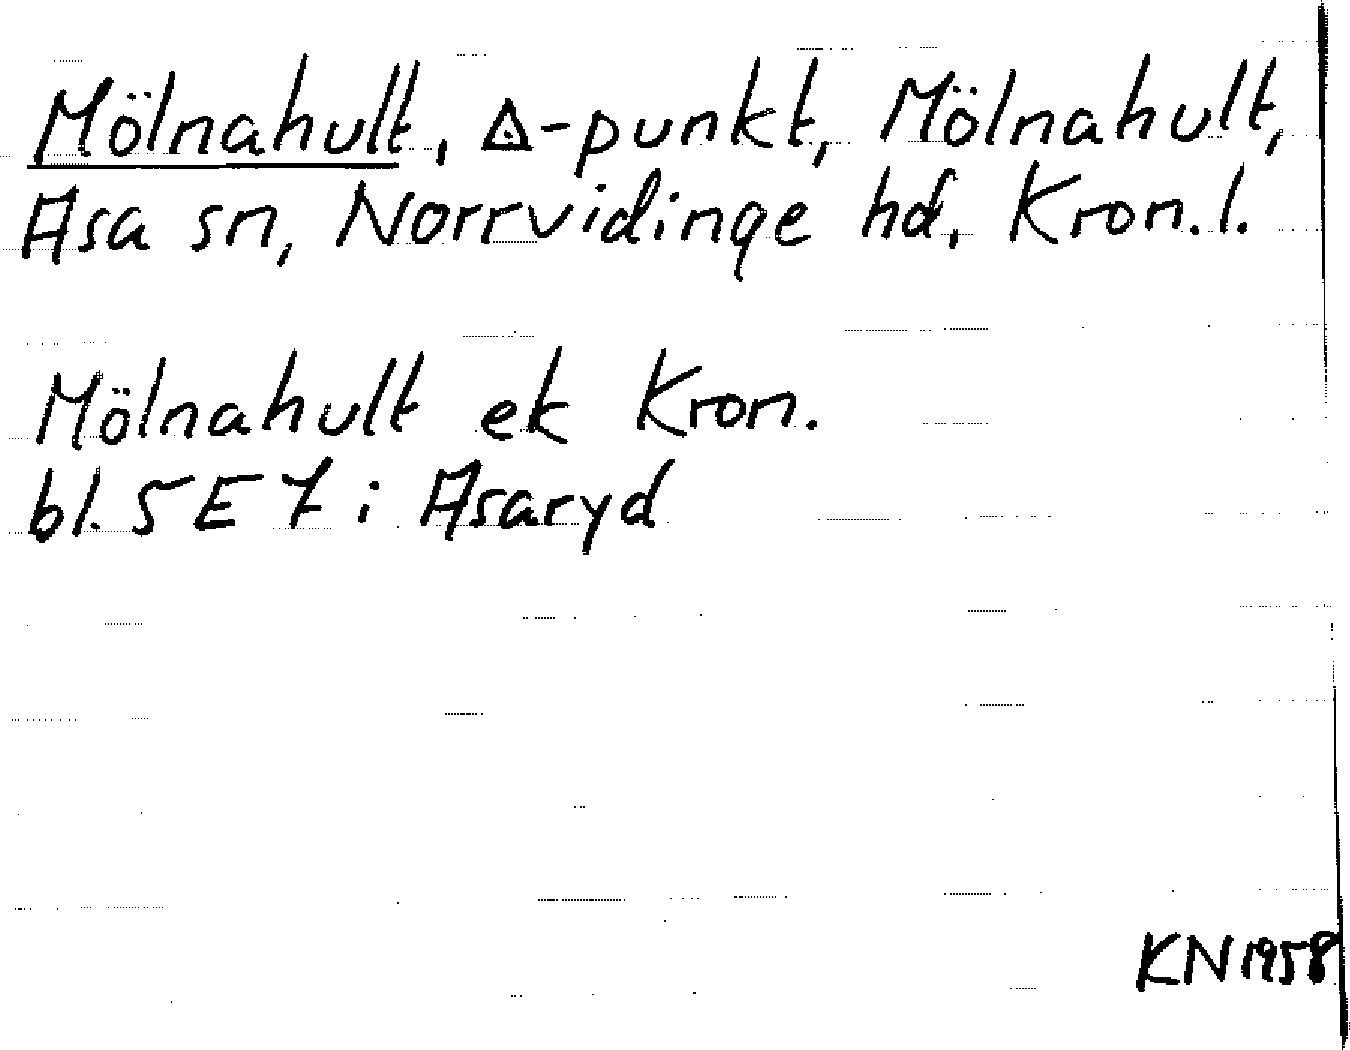 Mölnahult, △-punkt, Mölnahult,
Asa sn, Norrvidinge hd, Kron. l.
Mölnahult ek Kron.
bl. 5 E 7 i Asaryd
KN 1958